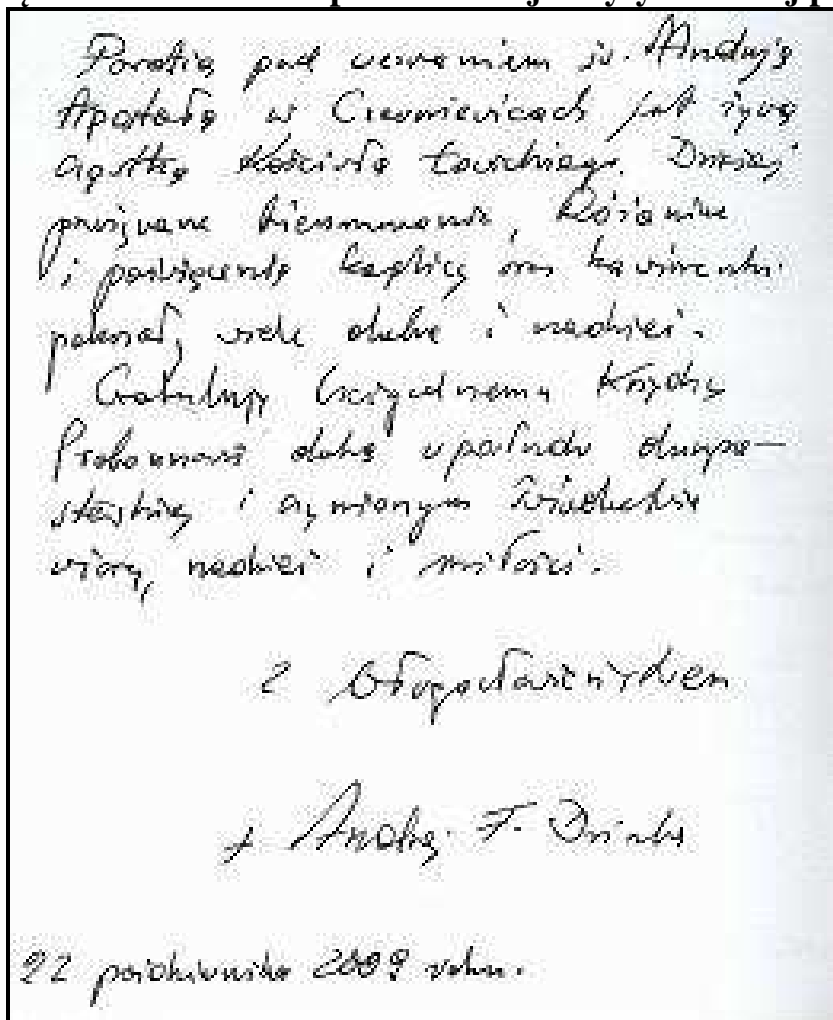 Parafia pod wezwaniem św. Andrzeja
Apostoła w Czerniewicach jest żywą
cząstką Kościoła Łowickiego. Dzisiaj
przeżywane bierzmowanie, różaniec
i poświęcenie kaplicy oraz
wiele dobra i nadziei.
Gratuluję Czcigodnemu Księdzu
Proboszczowi dobra duszpa-
sterskiej i świadectwa
wiary, nadziei i miłości.
Z błogosławieństwem
+ Andrzej F. Dziuba
22 października 2009 roku.